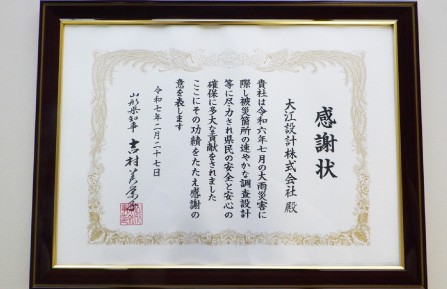 感謝状
大江設計株式会社 殿
貴社は令和六年七月の大雨災害に
際し被災箇所の速やかな調査設計
等に尽力され県民の安全と安心の
確保に多大な貢献をされました
ここにその功績をたたえ感謝の
意を表します
令和七年二月二十七日
山形県知事 吉村美栄子